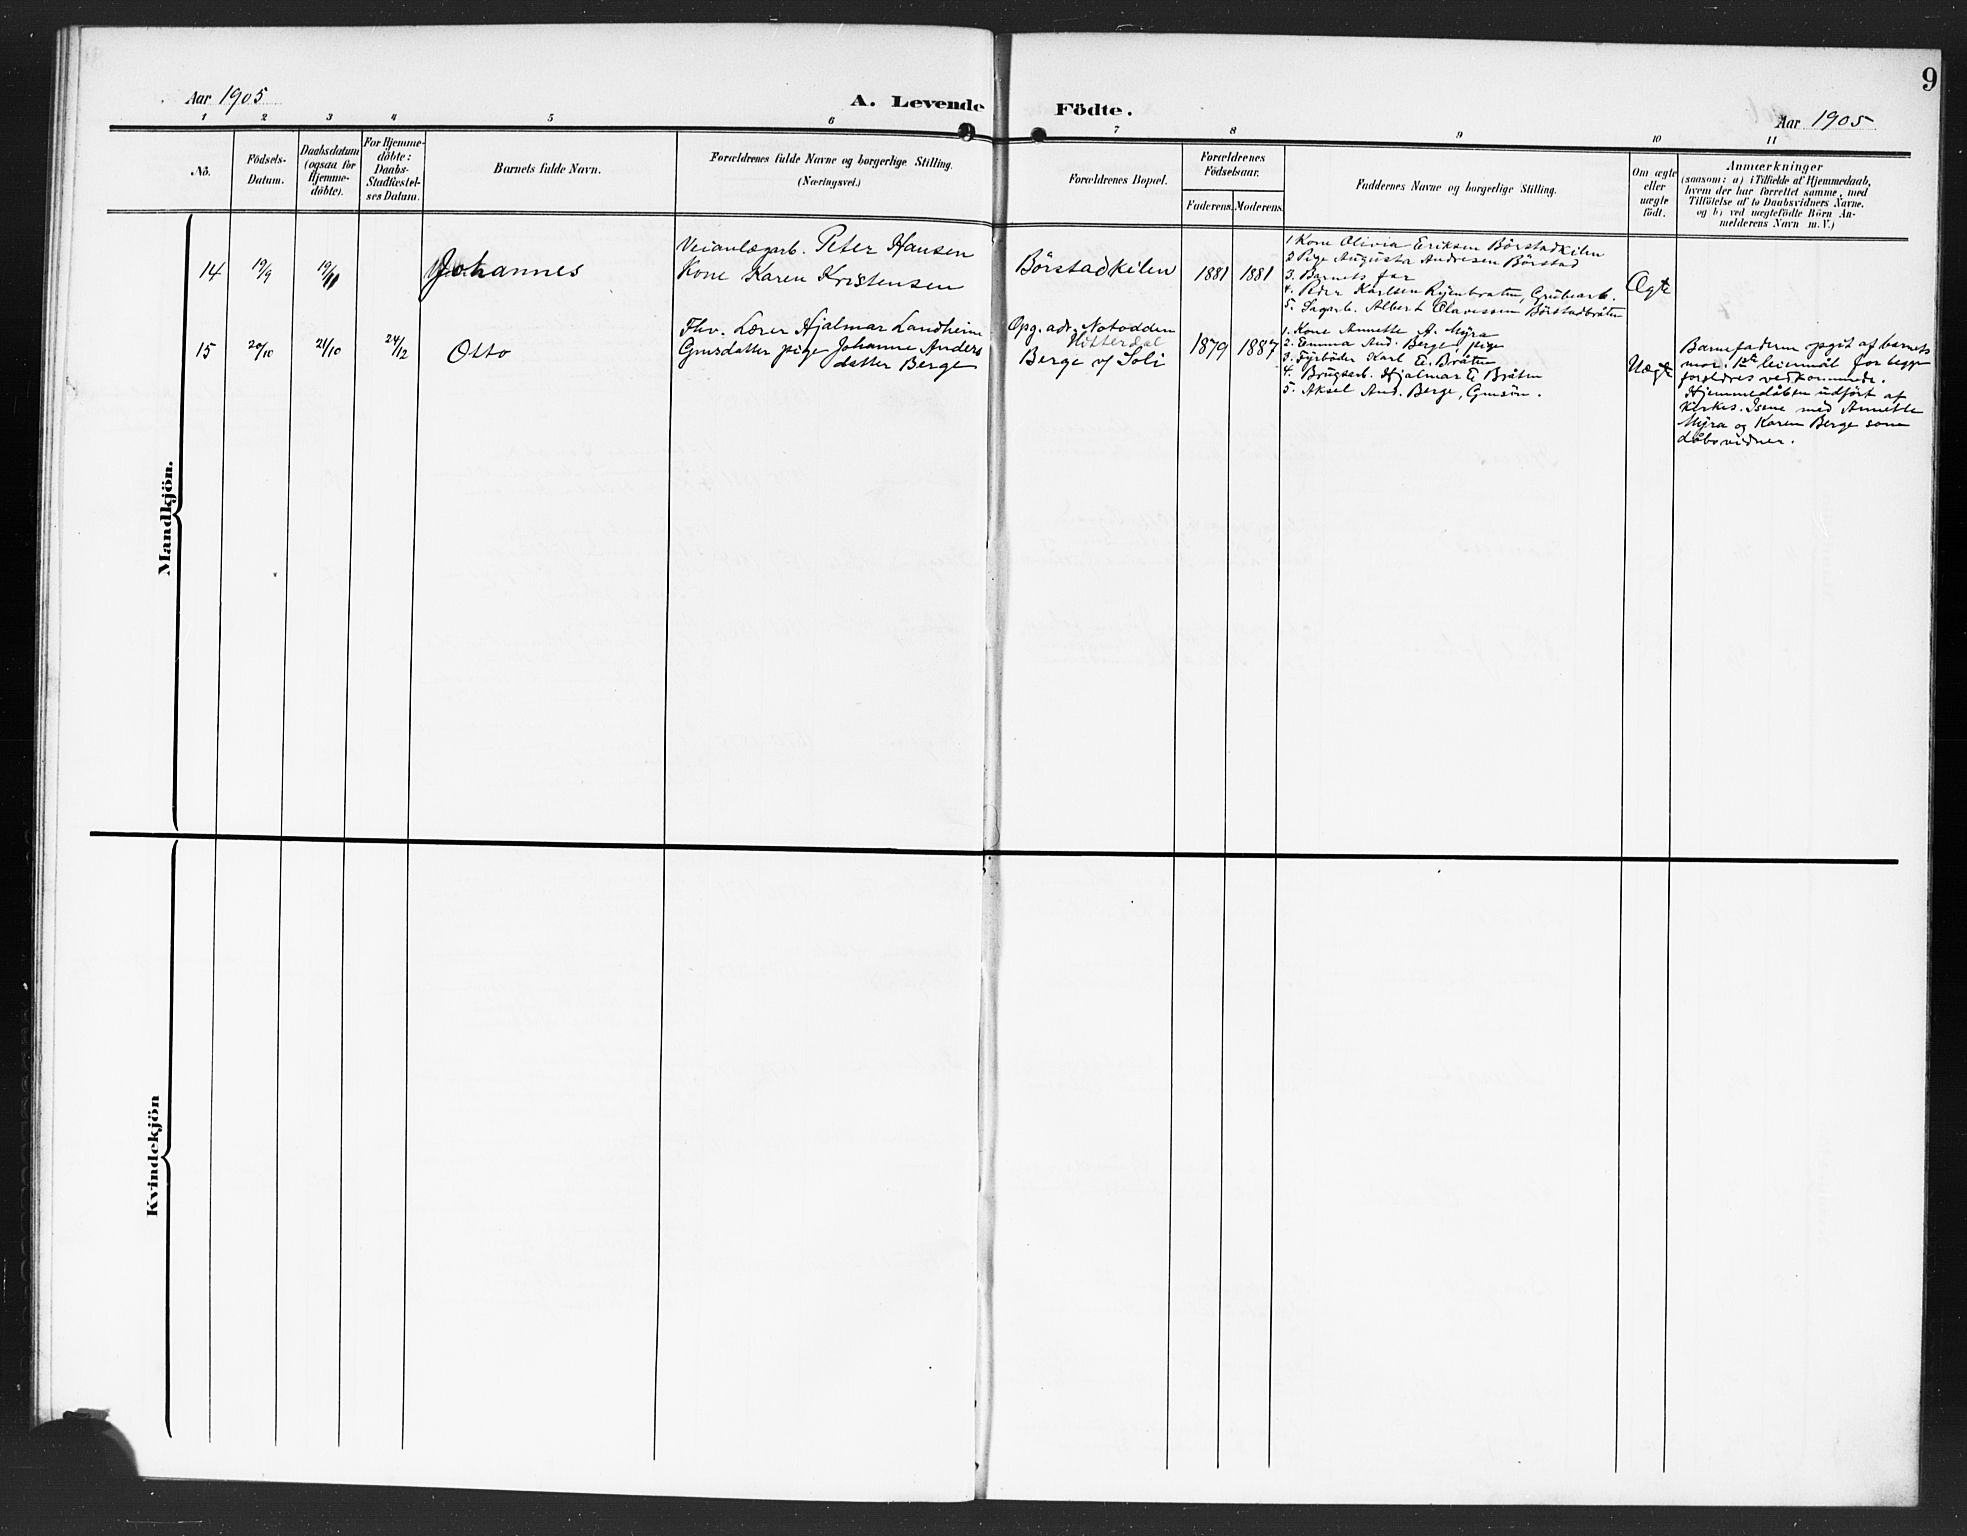 9
Aar 1905
A. Levende Födte.
Aar 1905
1 2 3 4 5 6 7 8 9 10 11
No.
Födsels-
Datum.
Daabsdatum
(ogsaa for
Hjemme-
döbte).
For Hjemme-
döbte:
Daabs-
Stadfæstel-
ses Datum.
Barnets fulde Navn.
Forældrenes fulde Navne og borgerlige Stilling.
(Næringsvei.)
Forældrenes Bopæl.
Forældrenes
Födselsaar.
Faderens.
Moderens.
Faddernes Navne og borgerlige Stilling.
Om ægte
eller
uægte
födt.
Anmærkninger
(saasom: a) i Tilfælde af Hjemmedaab,
hvem der har forrettet samme, med
Tilföielse af to Daabsvidners Navne.
og b) ved uægtefödte Börn An-
melderens Navn m. V.)
Mandkjön.
14
19/9
19/11
Johannes
Veianlægarb. Peter Hansen
Kone Karen Kristensen
Börstadkilen
1881
1881
1 Kone Olivia Eriksen Börstadkilen
2 Pige Augusta Andresen Börstad
3. Barnets far
4. Peder Karlsen Ryenbraten, Grubearb.
5. Sagarb. Albert Olavessen Börstadbråten
Ægte
15
20/10
21/10
24/12
Otto
Fhv. Lærer Hjalmar Landheim
Gmsdatter pige Johanne Anders
datter Berge
Opg. adr. Notodden
Hitterdal
Berge v/ Soli
1879
1887
1. Kone Annette A. Myra
2. Emma And. Berge, pige
3. Fyrböder Karl E. Bråten
4. Brugsarb. Hjalmar E Bråten
5. Aksel And. Berge, Gmsön.
Uægte
Barnefaderen opgit af barnets
mor. 1ste leiermål for begge
foreldres vedkommende.
Hjemmedåben udfört af
Kirkes. Isene med Annette
Myra og Karen Berge som
dåbsvidner.
Kvindekjön